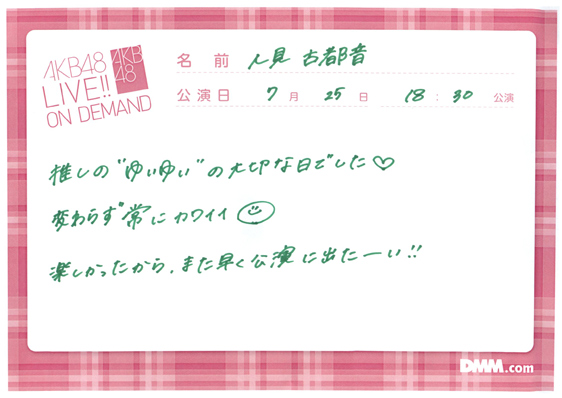 AKB48
LIVE!!
ON DEMAND
AKB
48
名前 人見 古都音
公演日 7月 25日 18:30 公演
推しの"ゆいゆい"の大切な日でした♡
変わらず常にカワイイ
楽しかったから、また早く公演に出たーい!!
DMM.com